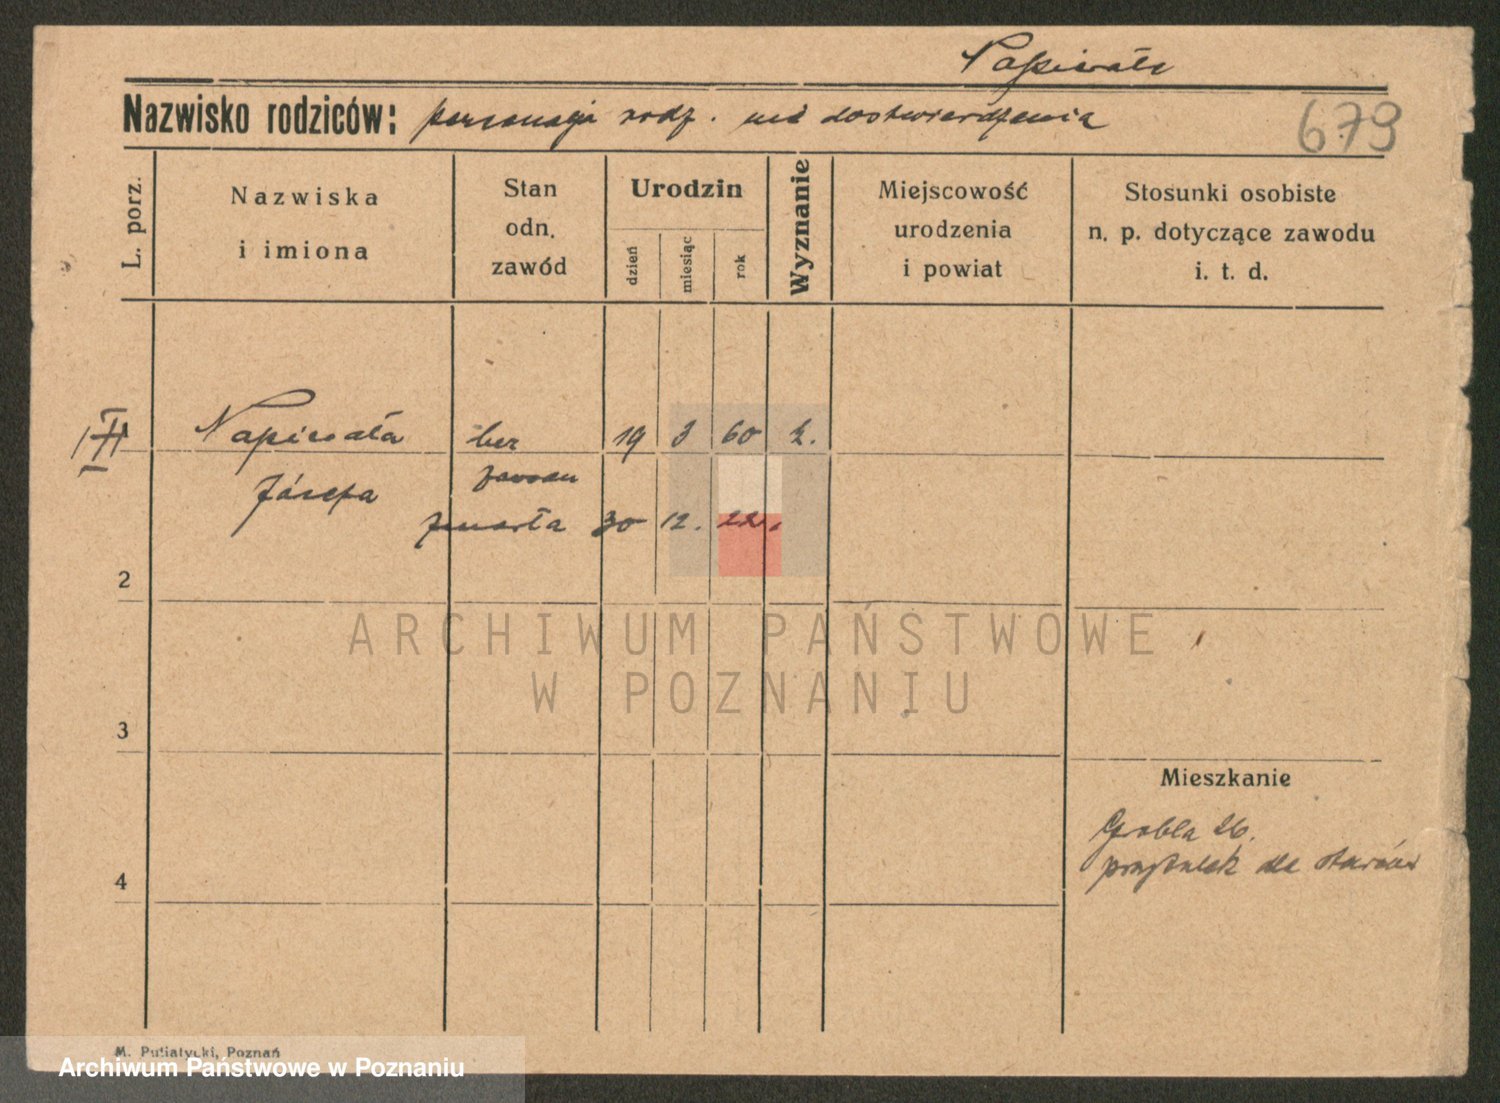 Napierała
Nazwisko rodziców: personalji rodz. nie do stwierdzenia
679
L. porz.
Nazwiska
i imiona
Stan
odn.
zawód
Urodzin
dzień
miesiąc
rok
Wyznanie
Miejscowość
urodzenia
i powiat
Stosunki osobiste
n. p. dotyczące zawodu
i. t. d.
Napierała bez 19 3 60 k.
Józefa zawodu
zmarła 30 12. 22.
2
ARCHIWUM PAŃSTWOWE
W POZNANIU
3
Mieszkanie
Grobla 26.
przytułek dla starców
4
M. Putiatycki, Poznań
Archiwum Państwowe w Poznaniu